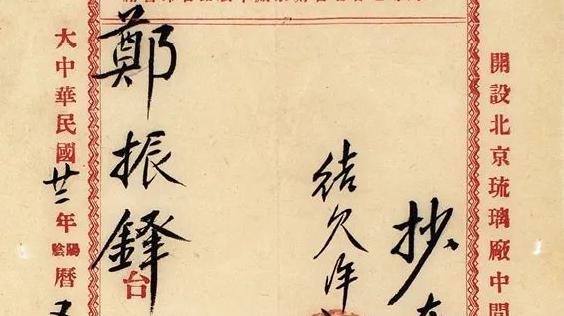 開設北京琉璃廠中間
抄
結欠洋
鄭振鐸台
大中華民國廿二年陰陽曆五